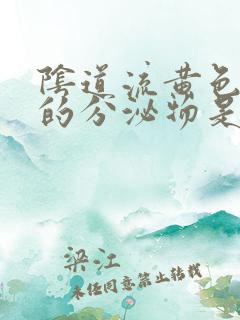 陰道流黄色
的分泌物是
梁江
未经同意禁止转载